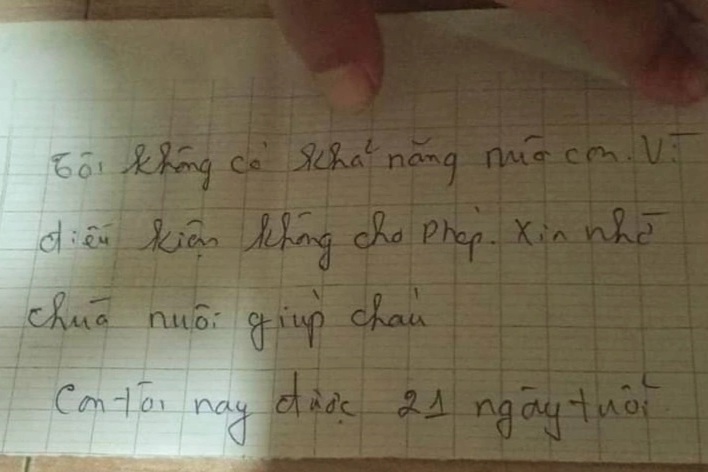 Tôi không có khả năng nuô con. Vì
điều kiện không cho phép. Xin nhờ
chuā nuôi giúp cháu
Con tôi nay được 21 ngày tuổi